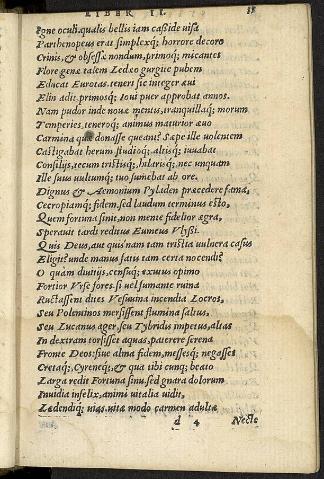 LIBER II. 88
Igne oculi, qualis bellis iam casside uisa
Parthenopeus erat simplexq; horrore decoro
Crinis, & obsessæ nondum, primoq; micantes
Flore genæ talem Ledæo gurgite pubem
Educat Eurotas. teneri sic integer æui
Elin adit, primosq; Ioui puer approbat annos.
Nam pudor inde nouæ mentis, tranquillaq; morum
Temperies, teneroq; animus maturior æuo
Carmina quæ donasse queant? Sæpe ille uolentem
Castigabat herum studioq; altisq; iuuabat
Consilijs, tecum tristisq;, hilarisq;, nec unquam
Ille suus uultumq; tuo sumebat ab ore.
Dignus & Aemonium Pyladen præcedere fama,
Cecropiamq; fidem, sed laudum terminus esto,
Quem fortuna sinit, non mente fidelior ægra,
Sperauit tardi reditus Eumeus Vlyssi.
Quis Deus, aut quis nam tam tristia uulnera casus
Eligit? unde manus fatis tam certa nocendi?
O quàm diuitijs, censuq; exutus opimo
Fortior Vrse fores si uel fumante ruina
Ructassent dites Vesuuina incendia Locros,
Seu Polentinos mersissent flumina saltus,
Seu Lucanus ager, seu Tybridis impetus, altas
In dextram torsisset aquas, paterere serena
Fronte Deos: siue alma fidem, messesq; negasset
Cretaq;, Cyreneq;, & qua tibi cunq; beato
Larga redit Fortuna sinu, sed gnara dolorum
Inuidia infelix, animi uitalia uidit,
Lædendiq; uias, uitæ modo carmen adultæ
d 4 Necte